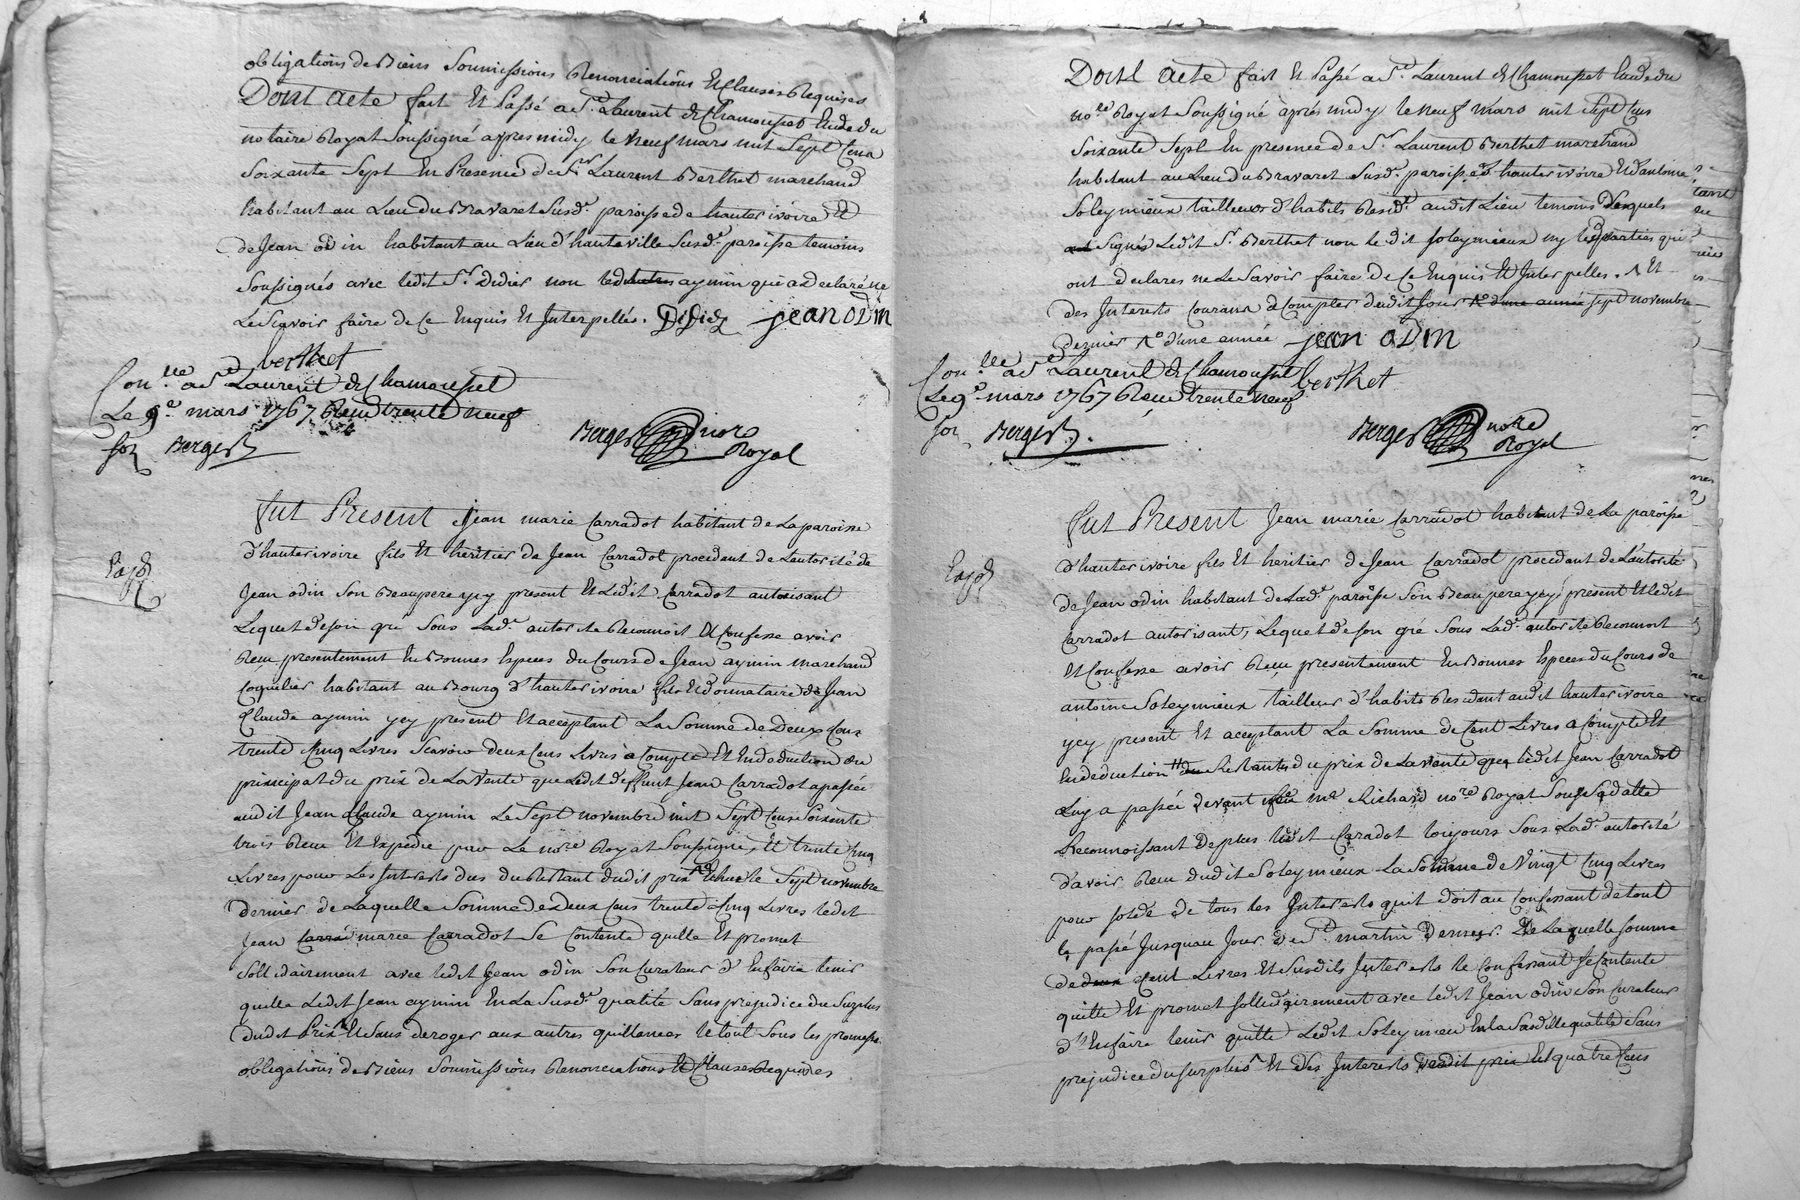 obligations de Biens Soumissions Renonciations Et Clauses Requises
Dont acte fait Et Passé a St. Laurent de Chamousset Etude du
notaire Royal Soussigné apres midy le neuf mars mil Sept Cens
Soixante Sept En Presence de Sr. Laurent Berthet marchand
habitant au Lieu du Bravaret Susd.e paroisse de hauterivoire Et
de Jean odin habitant au Lieu d'hauteville Susd.e paroisse temoins
Soussignés avec ledit Sr. Didier non ledit aymin qui a declaré ne
Le Scavoir faire de Ce Enquis Et Interpellés. Didier jean odin
berthet
Con.lle a St. Laurent de Chamousset
Le 9e. mars 1767 Receu trente neuf
sols Berger
Berger nore
Royal
Fut Present Jean marie Carradot habitant de La paroisse
d'hauterivoire fils Et heritier de Jean Carradot procedant de Lautorité de
Jean odin Son Beaupere ycy present Et Ledit Carradot autorisant
Lequel de Son gré Sous Lad.e autorité Reconnoit Et Confesse avoir
Receu presentement En Bonnes Especes du Cours de Jean aymin marchand
Coquelier habitant au Bourg d'hauterivoire fils Et donnataire de Jean
Claude aymin ycy present Et acceptant La Somme de Deux Cens
trente Cinq Livres Scavoir deux Cens Livres a Compte Et En deduction du
principal du prix de La Vente que Ledit deffunt Jean Carradot a passée
audit Jean Claude aymin Le Sept novembre mil Sept Cens Soixante
trois Receu Et Expedié par Le nore Royal Soussigné, Et trente Cinq
Livres pour Les Interests dus du Restant dudit prix Echus le Sept novembre
dernier de Laquelle Somme de Deux Cens trente Cinq Livres ledit
Jean marie Carradot Se Contente quitte Et promet
Sollidairement avec ledit Jean odin Son Curateur d'En faire tenir
quitte Ledit Jean aymin En La Susd.e qualité Sans prejudice du Surplus
dudit Prix Et Sans deroger aux autres quittances le tout Sous les promesses
obligations de Biens Soumissions Renonciations Et Clauses Requises
Dont acte fait Et Passé a St. Laurent de Chamousset Etude du
nore. Royal Soussigné après midy le neuf mars mil Sept Cens
Soixante Sept En presence de Sr. Laurent Berthet marchand
habitant au Lieu du Bravaret Susd.e paroisse d'hauterivoire Et d'antoine
Soleymieux tailleur d'habits Resid.t audit Lieu temoins Desquels
a Signés Ledit Sr. Berthet non le dit Soleymieux ny les parties qui
ont declares ne Le Savoir faire de Ce Enquis Et Interpelles. Et
des Interests Courans a Compter dudit Jour Sept novembre
Dernier d'une année jean odin
Con.lle a St. Laurent de Chamousset berthet
Le 9e. mars 1767 Receu trente neuf
sols Berger
Berger nore
Royal
Fut Present Jean marie Carradot habitant de La paroisse
d'hauterivoire fils Et heritier de Jean Carradot procedant de L'autorité
de Jean odin habitant de Lad.e paroisse Son Beaupere ycy present Et ledit
Carradot autorisant, Lequel de Son gré Sous Lad.e autorité Reconnoit
Et Confesse avoir Receu presentement En Bonnes Especes du Cours de
antoine Soleymieux tailleur d'habits Residant audit hauterivoire
ycy present Et acceptant La Somme de Cent Livres a Compte Et
En deduction Restant du prix de La vente que ledit Jean Carradot
Luy a passée devant me Richard nore. Royal Sous Sa datte
Reconnoissant De plus ledit Carradot toujours Sous Lad.e autorité
d'avoir Receu dudit Soleymieux La Somme de Vingt Cinq Livres
pour Solde de tous les Interests quil doit au Confessant de tout
le passé Jusquau Jour de St. martin dernier. De Laquelle Somme
de Cent Livres Et Susdits Interests le Confessant Se Contente
quitte Et promet Sollidairement avec ledit Jean odin Son Curateur
d'En faire tenir quitte Ledit Soleymieux En la Susditte qualité Sans
prejudice du Surplus Et des Interests dudit prix Est quatre Cens